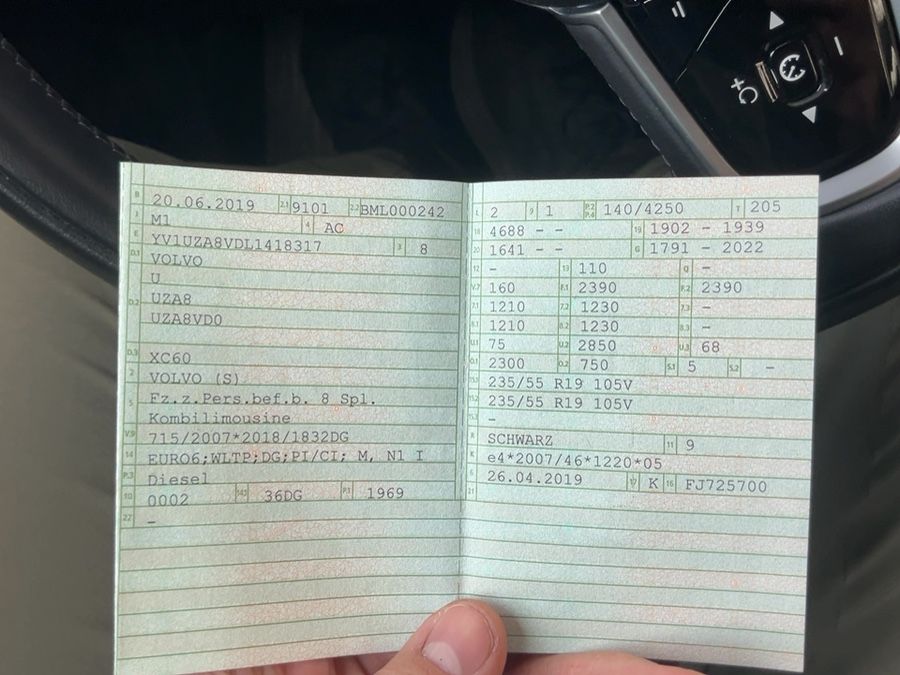 B 20.06.2019 2.1 9101 2.2 BML000242
J M1 4 AC
E YV1UZA8VDL1418317 3 8
D.1 VOLVO
U
D.2 UZA8
UZA8VD0
D.3 XC60
2 VOLVO (S)
5 Fz.z.Pers.bef.b. 8 Spl.
Kombilimousine
V.9 715/2007*2018/1832DG
14 EURO6;WLTP;DG;PI/CI; M, N1 I
P.3 Diesel
10 0002 14.1 36DG P.1 1969
22 –
L 2 9 1 P.2 P.4 140/4250 T 205
18 4688 – – 19 1902 – 1939
20 1641 – – G 1791 – 2022
12 – 13 110 Q –
V.7 160 F.1 2390 F.2 2390
7.1 1210 7.2 1230 7.3 –
8.1 1210 8.2 1230 8.3 –
U.1 75 U.2 2850 U.3 68
O.1 2300 O.2 750 S.1 5 S.2 –
15.1 235/55 R19 105V
15.2 235/55 R19 105V
15.3 –
R SCHWARZ 11 9
K e4*2007/46*1220*05
6 26.04.2019 17 K 16 FJ725700
21